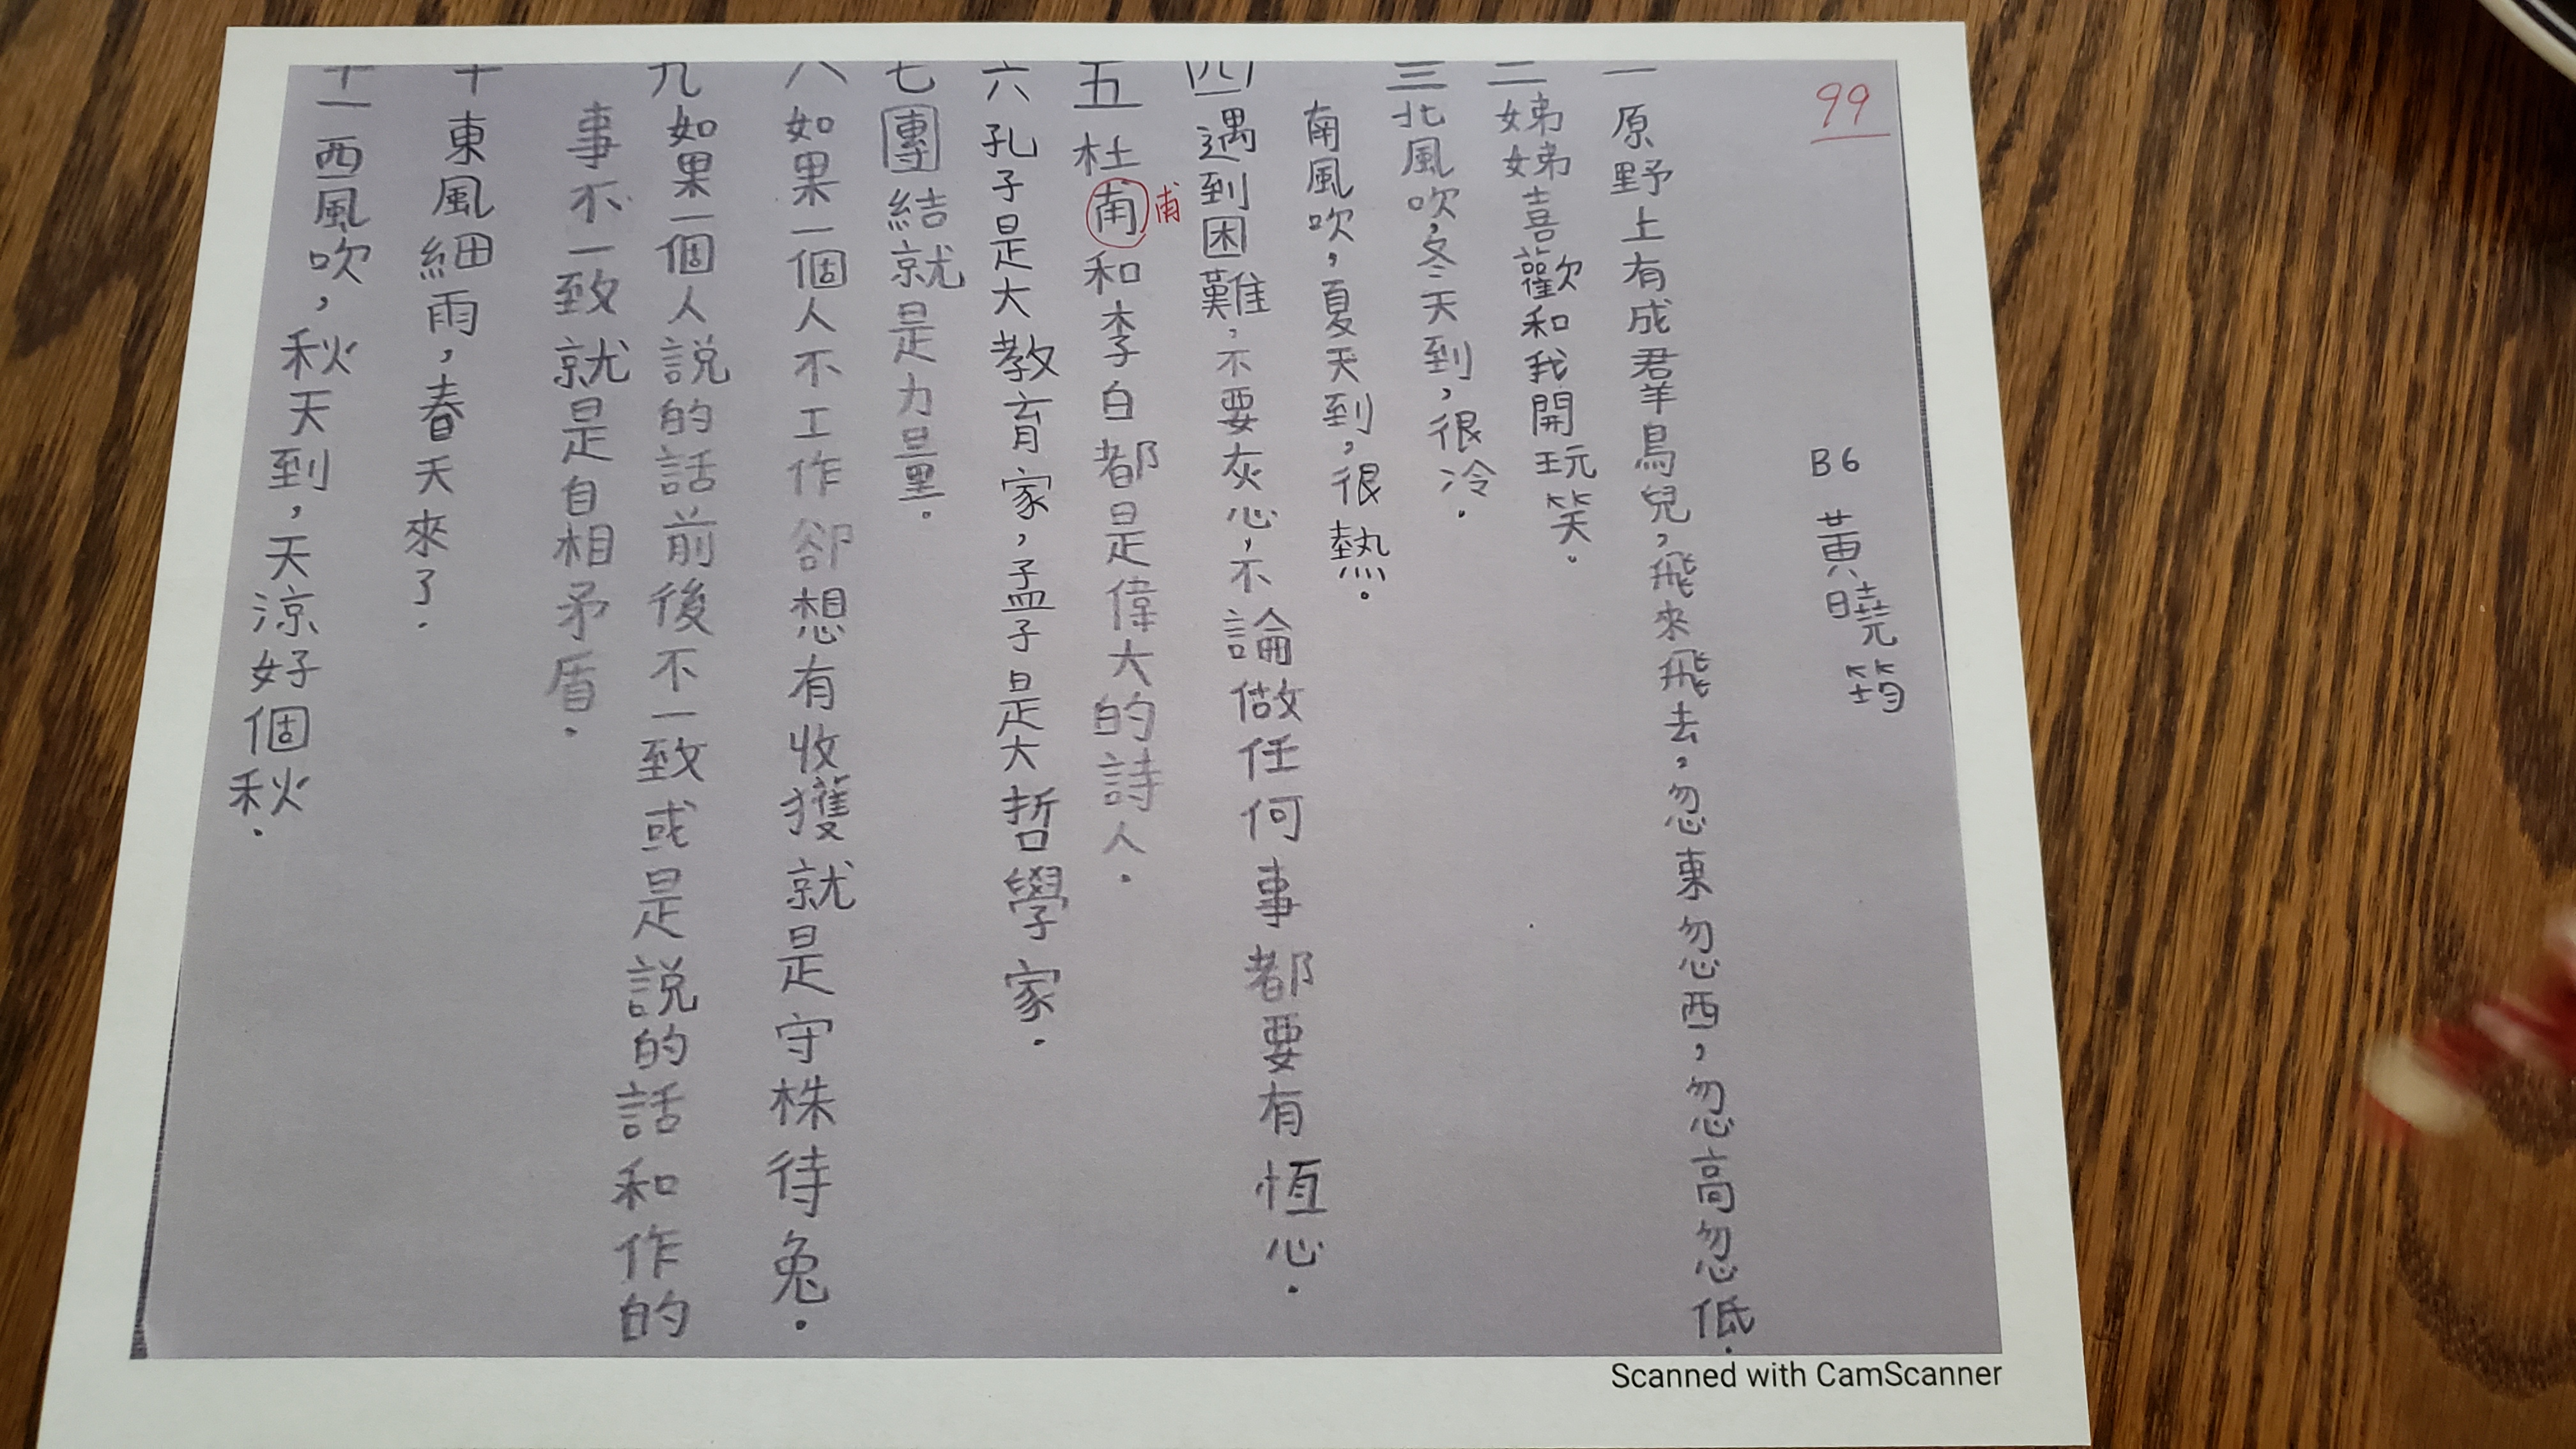 99
B6 黃曉筠
一 原野上有成羣鳥兒，飛來飛去，忽東忽西，忽高忽低．
二 娣娣喜歡和我開玩笑．
三 北風吹，冬天到，很冷．
南風吹，夏天到，很熱．
四 遇到困難，不要灰心，不論做任何事都要有恆心．
五 杜南和李白都是偉大的詩人．
甫
六 孔子是大教育家，孟子是大哲學家．
七 團結就是力量．
八 如果一個人不工作卻想有收獲就是守株待兔．
九 如果一個人說的話前後不一致或是說的話和作的
事不一致就是自相矛盾．
十 東風細雨，春天來了．
十一 西風吹，秋天到，天涼好個秋．
Scanned with CamScanner